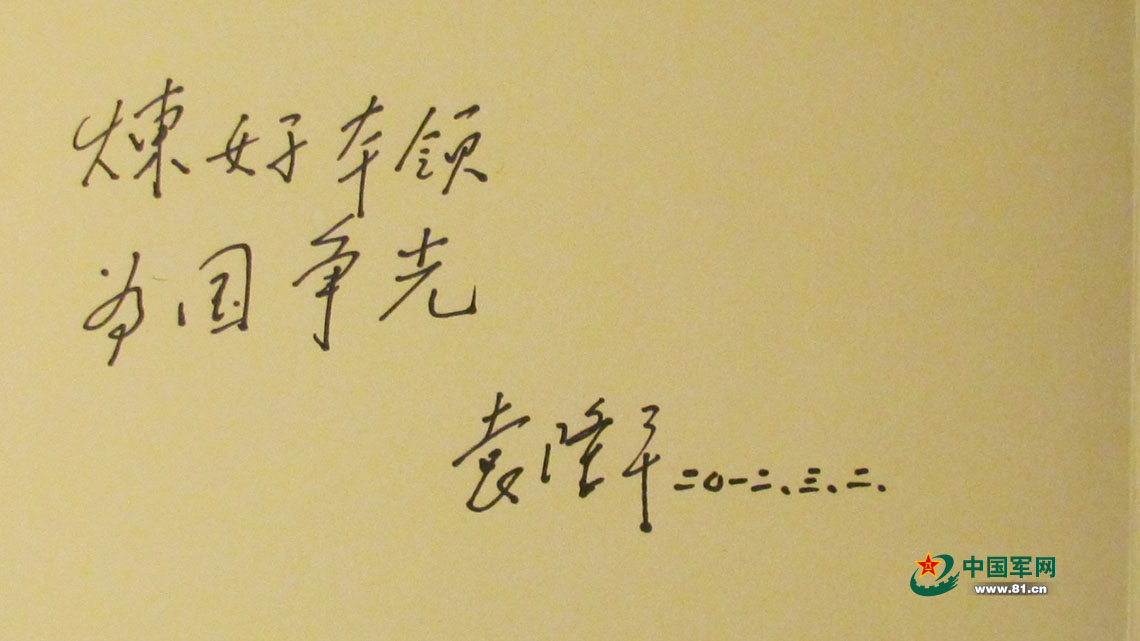 煉好本领
为国争光
袁隆平 二〇一二、三、二、
中国军网
www.81.cn